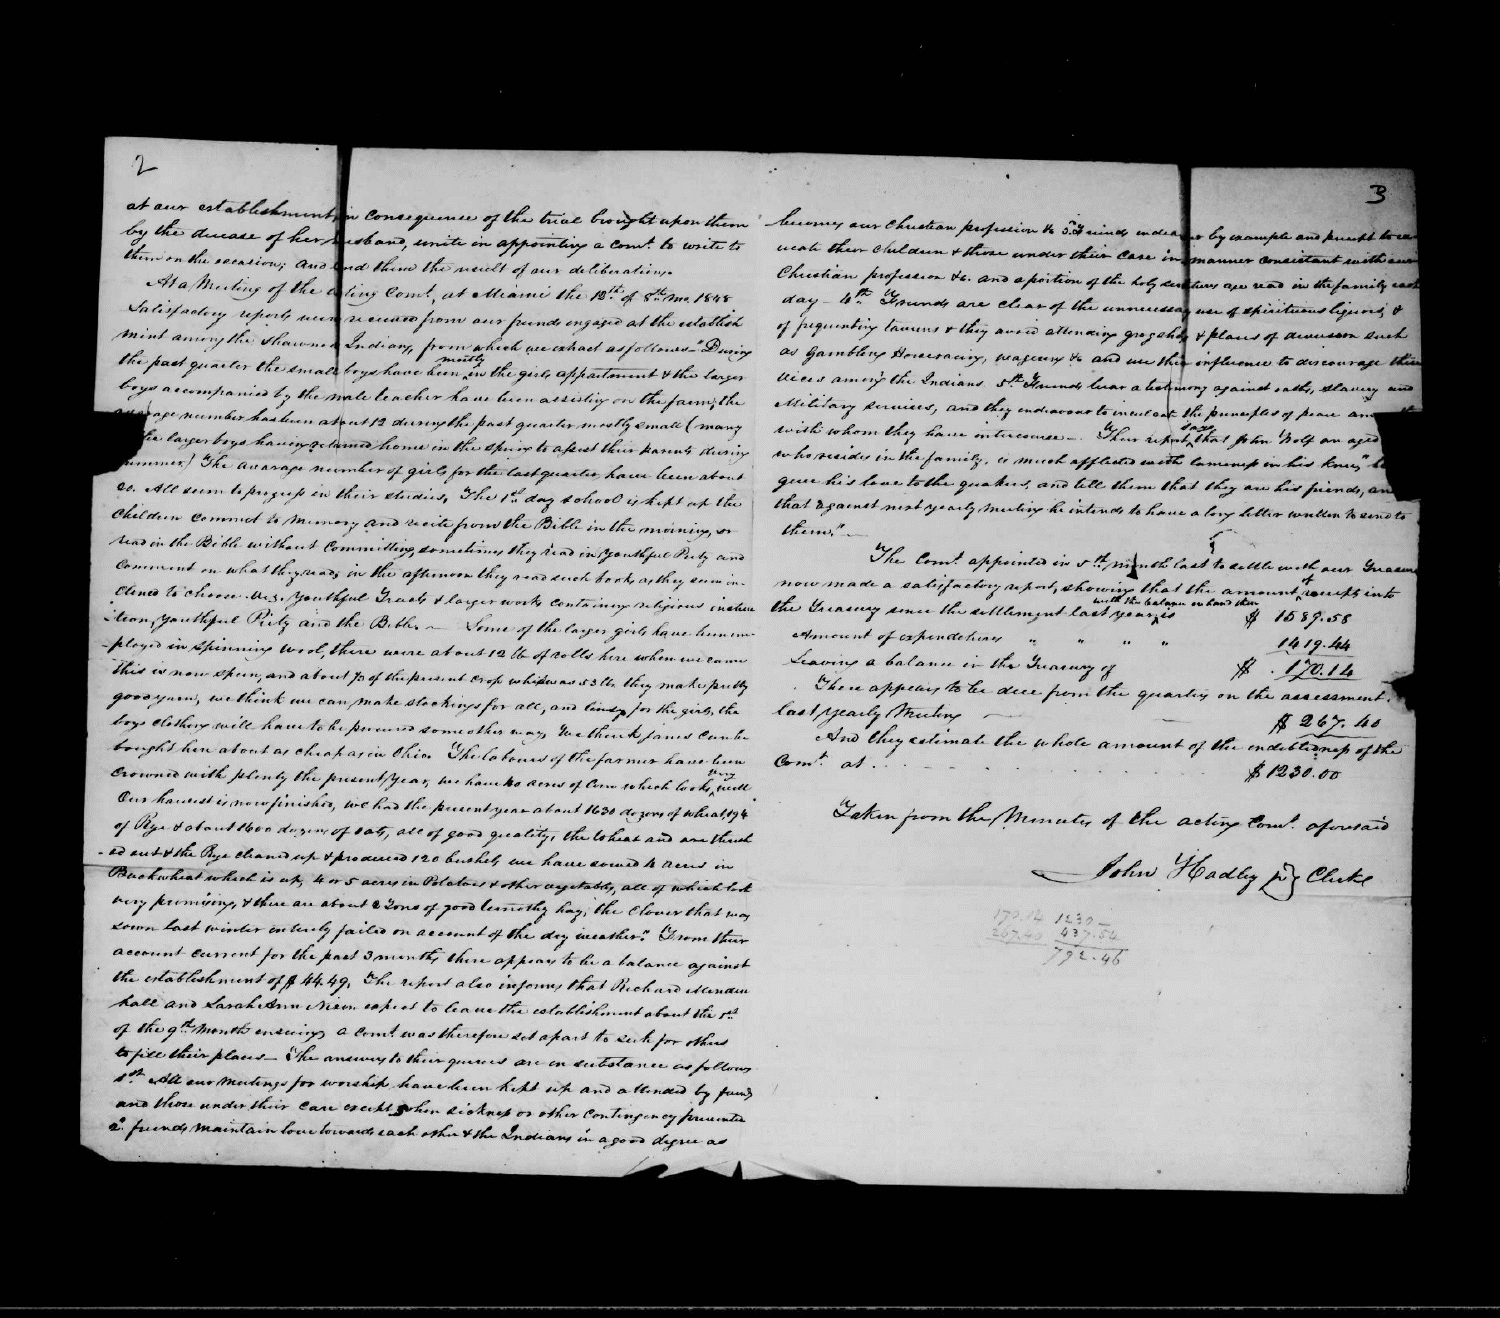 2
at our establishment, in consequence of the trial brought upon them
by the decease of her husband, unite in appointing a Comt. to write to
them on the occasion; and send them the result of our deliberations.
At a Meeting of the acting Comt. at Miami the 12th of 8th mo. 1848
Satisfactory reports were received from our friends engaged at the establish
ment among the Shawnee Indians, from which we extract as follows "During
the past quarter the small boys have been mostly in the girls appartment & the larger
boys accompanied by the male teacher have been assisting on the farm, the
average number has been about 12 during the past quarter mostly small (many
the larger boys having returned home in the spring to assist their parents during
summer) The avarage number of girls for the last quarter have been about
20. All seem to progress in their studies, The 1st day school is kept up the
Children commit to Memory and recite from the Bible in the morning, or
read in the Bible without committing, sometimes they read in youthful Piety and
comment on what they read; in the afternoon they read such books as they seem in-
clined to choose. viz. Youthful Tracts & larger works containing religious instruc
tion, youthful Piety and the Bible. — Some of the larger girls have been em
-ployed in spinning wool, there were about 12 lb of rolls here when we came
this is now spun, and about ⅓ of the present crop which was 53 lbs they make pretty
good yarn, we think we can make stockings for all, and linsey for the girls, the
boys clothing will have to be procured some other way, We think janes can be
bought here about as cheap as in Ohio. The labours of the farmer have been
crowned with plenty the present year, we have 20 acres of Corn which looks very well
Our harvest is now finished, we had the present year about 1630 dozens of wheat, 194
of Rye & about 1600 dozens of oats, all of good quality, the wheat and are thresh
-ed out & the Rye cleaned up & produced 120 bushels we have sowed 10 acres in
Buckwheat which is up, 4 or 5 acres in Potatoes & other vegetables, all of which look
very promising, & there are about 2 tons of good timothy hay, the clover that was
sown last winter entirely failed on account of the dry weather." From their
account current for the past 3 months there appears to be a balance against
the establishment of $44.49, The report also informs that Richard Menden
hall and Sarah Ann Nixon expect to leave the establishment about the 1st
of the 9th Month ensuing, a Comt. was therefore set apart to seek for others
to fill their places — The answers to their queries are in substance as follows
1st All our Meetings for worship have been kept up and attended by friends
and those under their care except when sickness or other contingency prevented
2. friends maintain love towards each other & the Indians in a good degree as
3
becomes our Christian profession &c 3d Friends endeavor by example and precept to
ucate their Children & those under their care in manner consistent with our
Christian profession &c. and a portion of the holy scriptures are read in the family each
day — 4th Friends are clear of the unnecessary use of spirituous liquors, &
of frequenting taverns & they avoid attending grogshops & places of diversion such
as Gambling Horseracing, wagers &c and use their influence to discourage these
vices among the Indians. 5th Friends bear a testimony against oaths, slavery and
Military services, and they endeavour to inculcate the principles of peace
with whom they have intercourse — Their report says that John Wolf an aged
who resides in the family, is much afflicted with lameness in his knees, "he
gave his love to the quakers, and tell them that they are his friends, and
that against next yearly meeting he intends to have a long letter written to send to
them." —
The Comt. appointed in 5th month last to settle with our Treasurer
now made a satisfactory report, showing that the amount of receipts into
the Treasury since the settlement last year, with the balance on hand then is $ 1589.58
Amount of expenditures " " " " 1419.44
Leaving a balance in the Treasury of $ 170.14
There appears to be due from the quarters on the assessment
last yearly Meeting — — $ 267.40
And they estimate the whole amount of the indebtedness of the
Comt. at . . . . . . . . $1230.00
Taken from the Minutes of the acting Comt. aforesaid
John Hadley jr Clerk
170.14 1230 —
267.40 437.54
792.46